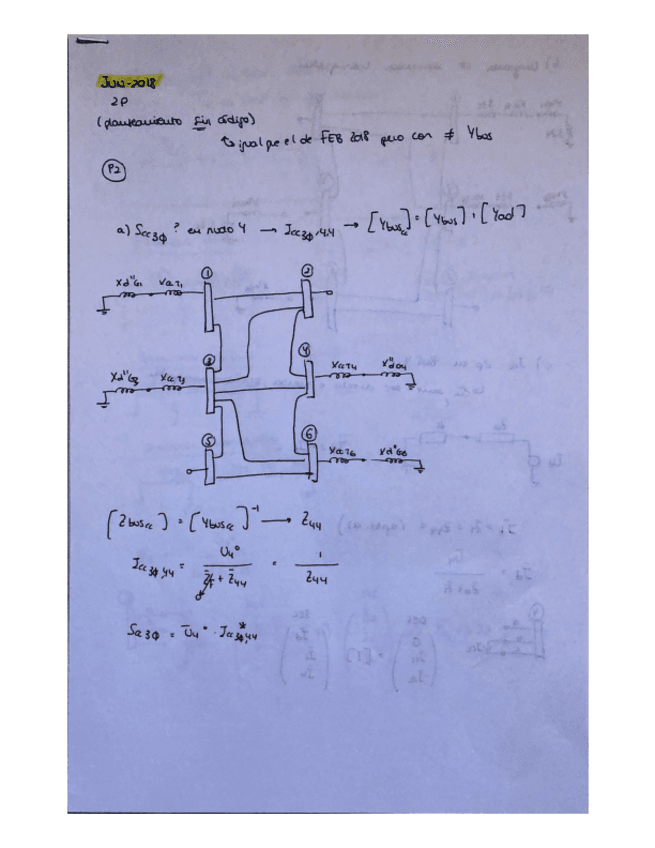 JUN-2018
2P
(planteamiento sin código)
↳ igual que el de FEB 2018 pero con ≠ Ybus
P2
a) Scc3ϕ? en nudo 4 → Icc3ϕ,44 → [Ybuscc] = [Ybus] + [Yad]
1 2
Xd''G1 Xcc T1
3 4
Xd''G3 Xcc T3 Xcc T4 Xd''G4
5 6
Xcc T6 Xd''G6
[Zbuscc] = [Ybuscc]⁻¹ → Z44
Icc3ϕ,44 = U4⁰ / (Zf + Z44) = 1 / Z44
0
Scc3ϕ = U4⁰ · Icc3ϕ,44*